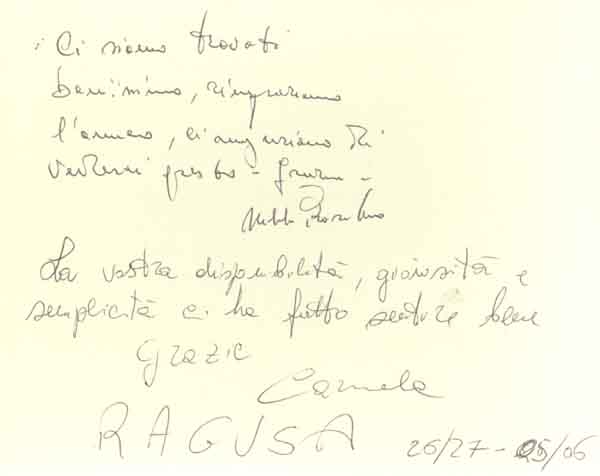 Ci siamo trovati
benissimo, ringraziamo
ci auguriamo di
vederci presto -
La vostra disponibilità, gioiosità e
semplicità ci ha fatto sentire bene
Grazie
Carmela
RAGUSA 26/27-05/06